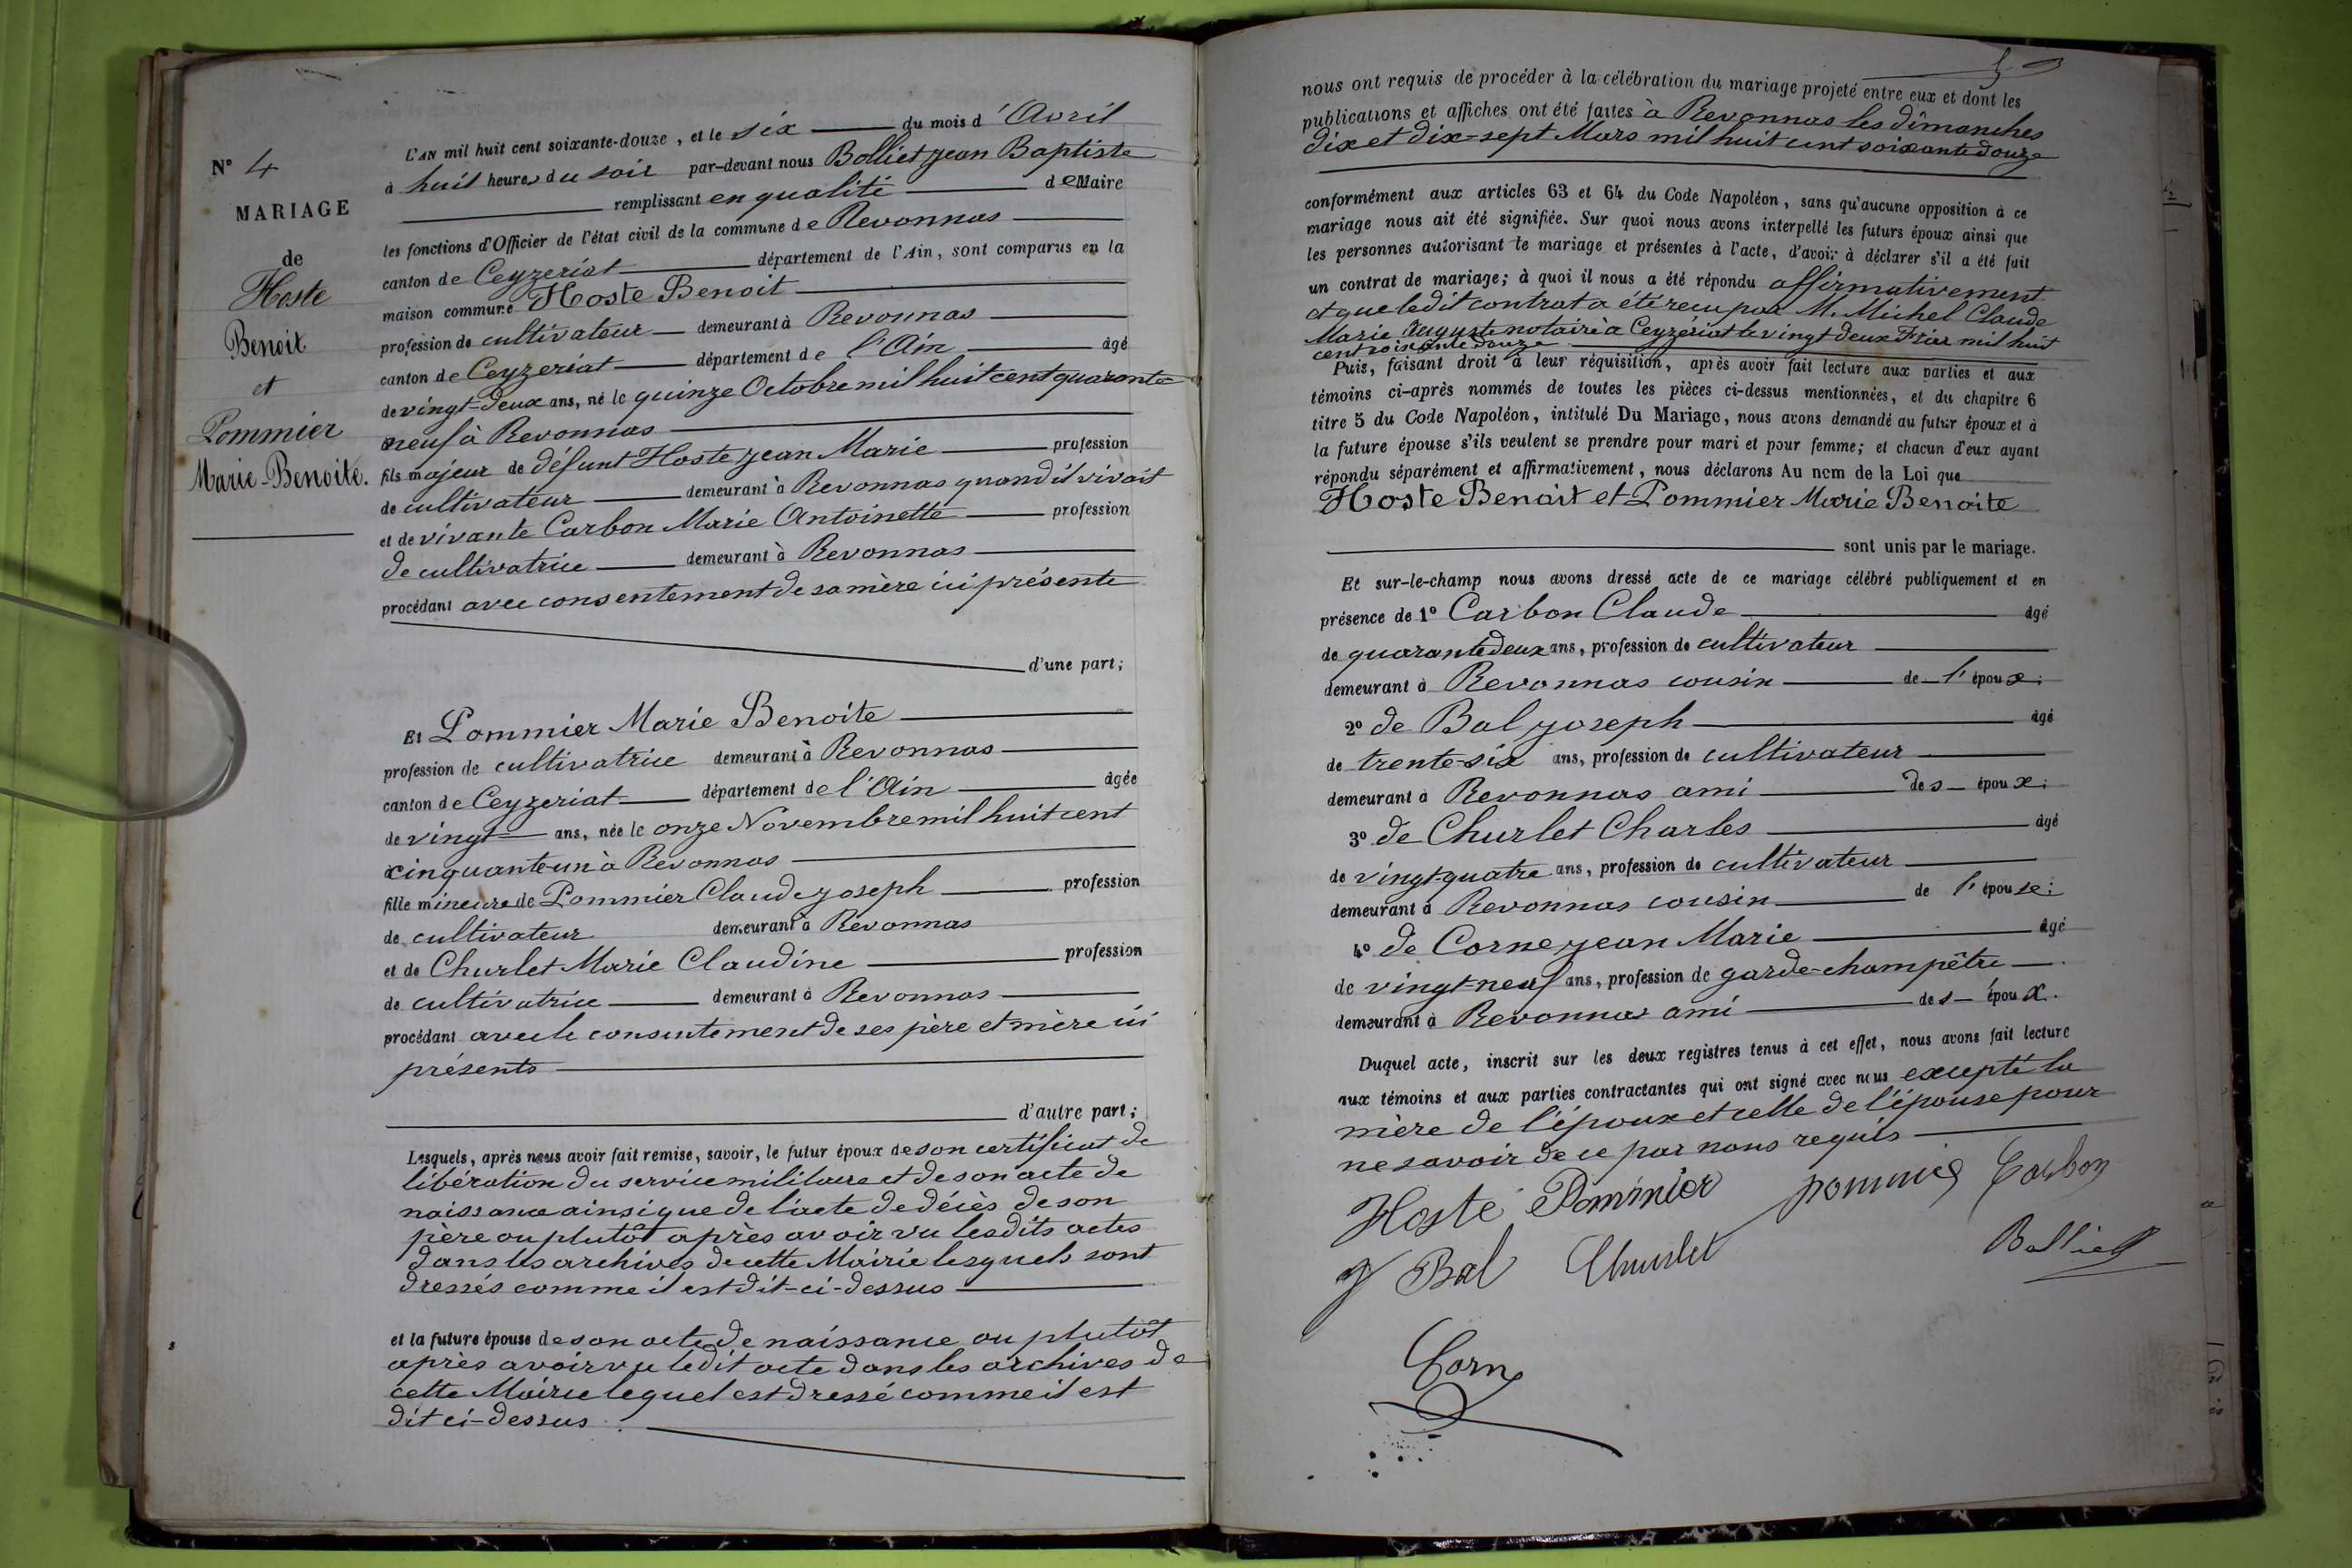 N° 4
MARIAGE
de
Hoste
Benoit
et
Pommier
Marie-Benoite.
L'AN mil huit cent soixante-douze, et le six du mois d'Avril
à huit heures du soir par-devant nous Bolliet Jean Baptiste
remplissant en qualité de Maire
les fonctions d'Officier de l'état civil de la commune de Revonnas
canton de Ceyzeriat département de l'Ain, sont comparus en la
maison commune Hoste Benoit
profession de cultivateur demeurant à Revonnas
canton de Ceyzeriat département de l'Ain âgé
de vingt-deux ans, né le quinze Octobre mil huit cent quarante
neuf à Revonnas
fils majeur de défunt Hoste Jean Marie profession
de cultivateur demeurant à Revonnas quand il vivait
et de vivante Carbon Marie Antoinette profession
de cultivatrice demeurant à Revonnas
procédant avec consentement de sa mère ici présente
d'une part;
Et Pommier Marie Benoite
profession de cultivatrice demeurant à Revonnas
canton de Ceyzeriat département de l'Ain âgée
de vingt ans, née le onze Novembre mil huit cent
cinquante-un à Revonnas
fille mineure de Pommier Claude Joseph profession
de cultivateur demeurant à Revonnas
et de Churlet Marie Claudine profession
de cultivatrice demeurant à Revonnas
procédant avec le consentement de ses père et mère ici
présents
d'autre part;
Lesquels, après nous avoir fait remise, savoir, le futur époux de son certificat de
libération du service militaire et de son acte de
naissance ainsi que de l'acte de décès de son
père ou plutôt après avoir vu lesdits actes
dans les archives de cette Mairie lesquels sont
dressés comme il est dit-ci-dessus
et la future épouse de son acte de naissance ou plutôt
après avoir vu ledit acte dans les archives de
cette Mairie lequel est dressé comme il est
dit ci-dessus
nous ont requis de procéder à la célébration du mariage projeté entre eux et dont les
publications et affiches ont été faites à Revonnas les dimanches
dix et dix-sept Mars mil huit cent soixante douze
conformément aux articles 63 et 64 du Code Napoléon, sans qu'aucune opposition à ce
mariage nous ait été signifiée. Sur quoi nous avons interpellé les futurs époux ainsi que
les personnes autorisant le mariage et présentes à l'acte, d'avoir à déclarer s'il a été fait
un contrat de mariage; à quoi il nous a été répondu affirmativement
et que ledit contrat a été reçu par M. Michel Claude
Marie Auguste notaire à Ceyzériat le vingt deux Frier mil huit
cent soixante douze
Puis, faisant droit à leur réquisition, après avoir fait lecture aux parties et aux
témoins ci-après nommés de toutes les pièces ci-dessus mentionnées, et du chapitre 6
titre 5 du Code Napoléon, intitulé Du Mariage, nous avons demandé au futur époux et à
la future épouse s'ils veulent se prendre pour mari et pour femme; et chacun d'eux ayant
répondu séparément et affirmativement, nous déclarons Au nom de la Loi que
Hoste Benoit et Pommier Marie Benoite
sont unis par le mariage.
Et sur-le-champ nous avons dressé acte de ce mariage célébré publiquement et en
présence de 1° Carbon Claude âgé
de quarante deux ans, profession de cultivateur
demeurant à Revonnas cousin de l'époux;
2° de Bal Joseph âgé
de trente-six ans, profession de cultivateur
demeurant à Revonnas ami des époux;
3° de Churlet Charles âgé
de vingt-quatre ans, profession de cultivateur
demeurant à Revonnas cousin de l'épouse;
4° de Corne Jean Marie âgé
de vingt-neuf ans, profession de garde-champêtre
demeurant à Revonnas ami des époux.
Duquel acte, inscrit sur les deux registres tenus à cet effet, nous avons fait lecture
aux témoins et aux parties contractantes qui ont signé avec nous excepté la
mère de l'époux et celle de l'épouse pour
ne savoir de ce par nous requis
Hoste Pommier pommier Carbon
J Bal Churlet Bolliet
Corne